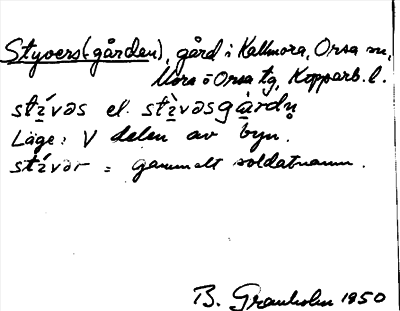 Styvers(gården), gård i Kallmora, Orsa sn,
Mora o Orsa tg, Kopparb. l.
stívəs el. stìvəsgàrdn̥
Läge: V delen av byn.
stívər = gammalt soldatnamn.
B. Granholm 1950